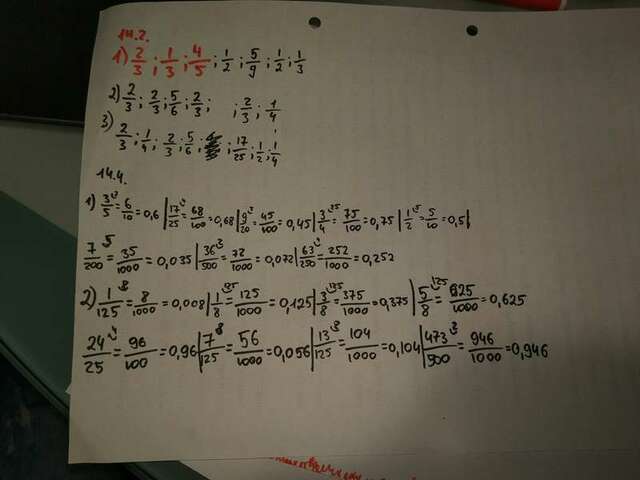 14.2.
1) 2/3 ; 1/3 ; 4/5 ; 1/2 ; 5/9 ; 1/2 ; 1/3
2) 2/3 ; 2/3 ; 5/6 ; 2/3 ; ; 2/3 ; 1/4
3) 2/3 ; 1/4 ; 2/3 ; 5/6 ; ; 17/25 ; 1/2 ; 1/4
14.4.
1) 3/5 ² = 6/10 = 0,6 | 17/25 = 68/100 = 0,68 | 9/20 = 45/100 = 0,45 | 3/4 ²⁵ = 75/100 = 0,75 | 1/2 ⁵ = 5/10 = 0,5 |
7/200 ⁵ = 35/1000 = 0,035 | 36/500 ² = 72/1000 = 0,072 | 63/250 = 252/1000 = 0,252
2) 1/125 ⁸ = 8/1000 = 0,008 | 1/8 ¹²⁵ = 125/1000 = 0,125 | 3/8 ¹²⁵ = 375/1000 = 0,375 | 5/8 ¹²⁵ = 625/1000 = 0,625
24/25 ⁴ = 96/100 = 0,96 | 7/125 ⁸ = 56/1000 = 0,056 | 13/125 ⁸ = 104/1000 = 0,104 | 473/500 ² = 946/1000 = 0,946